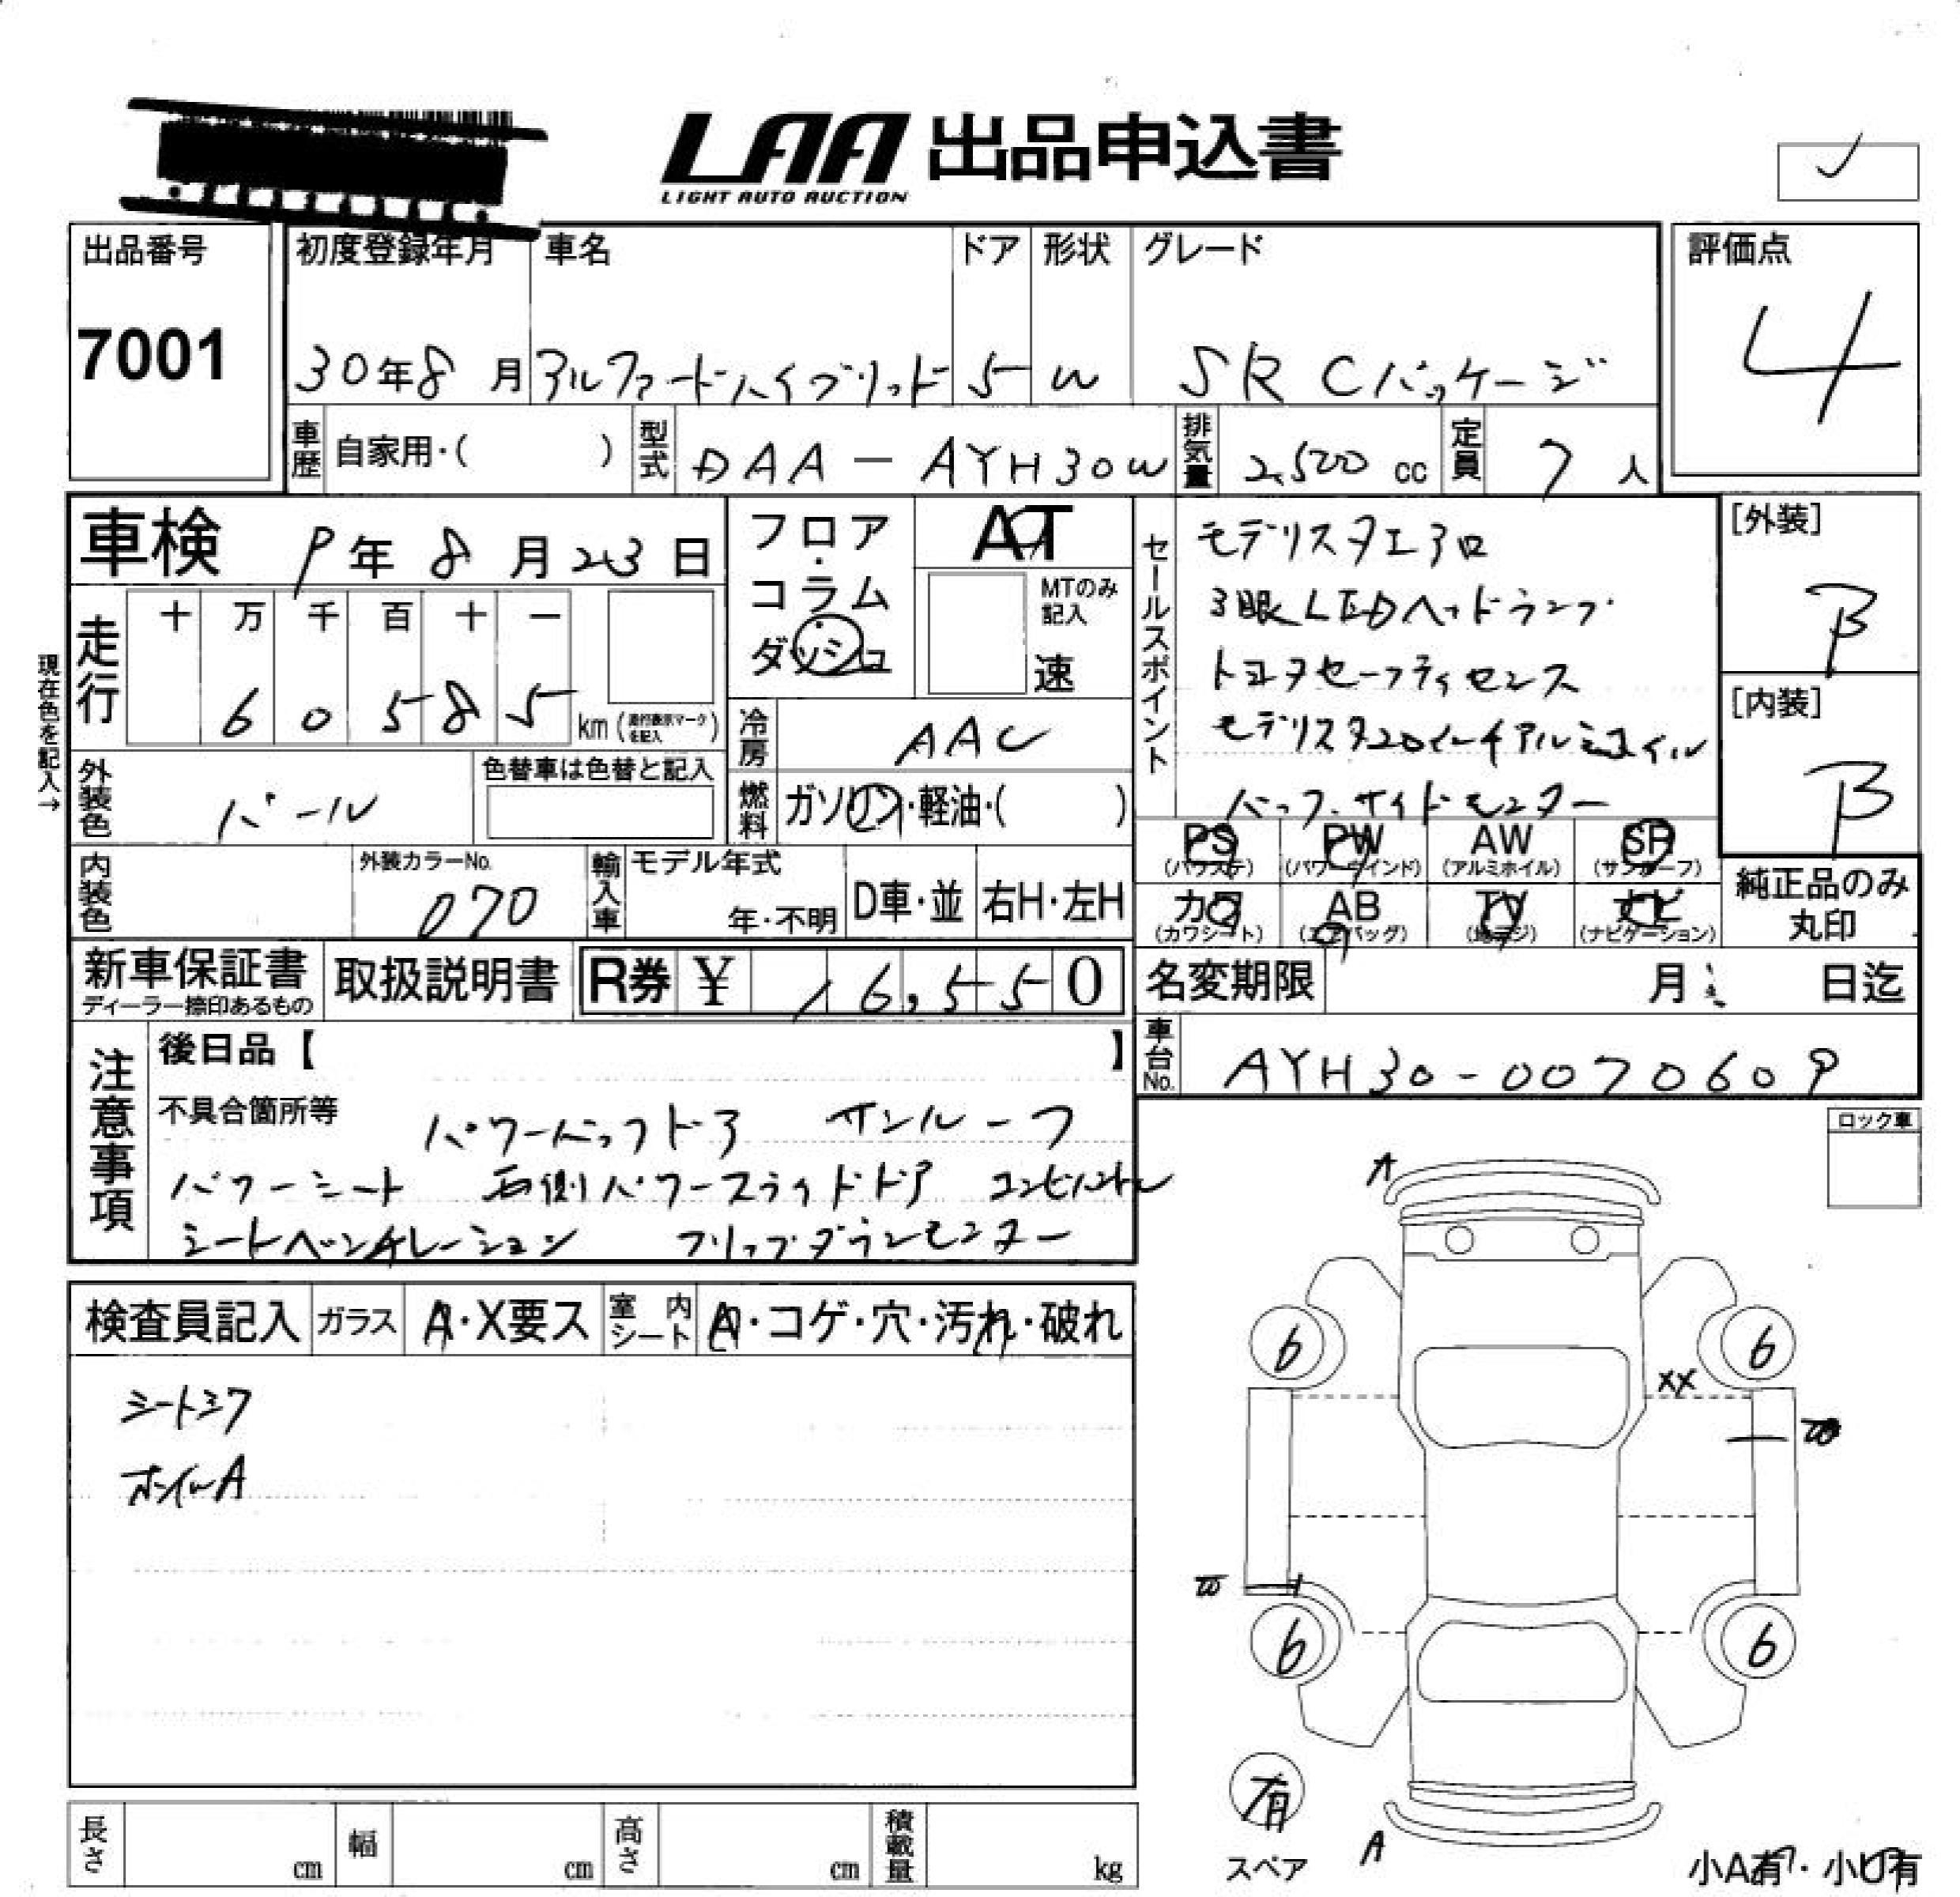 LAA 出品申込書
LIGHT AUTO AUCTION
出品番号 初度登録年月 車名 ドア 形状 グレード 評価点
7001 30年8月 アルファードハイブリッド 5 W SR Cパッケージ 4
車歴 自家用・( ) 型式 DAA-AYH30W 排気量 2,500 cc 定員 7 人
車検 9年8月23日
フロア・コラム・ダッシュ
AT
MTのみ記入
速
走行 十 万 千 百 十 一
6 0 5 8 5 km (走行表示マークを記入)
現在色を記入→
冷房 AAC
外装色 パール 色替車は色替と記入
燃料 ガソリン・軽油・( )
セールスポイント
モデリスタエアロ
3眼LEDヘッドランプ
トヨタセーフティセンス
モデリスタ20インチアルミホイル
バック、サイドモニター
[外装] B
[内装] B
PS (パワステ) PW (パワーウインド) AW (アルミホイル) SR (サンルーフ)
カワ (カワシート) AB (エアバッグ) TV (地デジ) ナビ (ナビゲーション)
純正品のみ丸印
内装色 外装カラーNo. 070 輸入車 モデル年式 年・不明 D車・並 右H・左H
新車保証書 ディーラー捺印あるもの 取扱説明書 R券 ¥ 16,550
名変期限 月 日迄
車台No. AYH30-0070609
注意事項
後日品【 】
不具合箇所等
パワーバックドア サンルーフ
パワーシート 右側パワースライドドア コンビハンドル
シートベンチレーション フリップダウンモニター
ロック車
検査員記入 ガラス A・X要ス 室内シート A・コゲ・穴・汚れ・破れ
シートシワ
ホイルA
A
6 6
XX
6 6
有
スペア
A
小A有・小U有
長さ cm 幅 cm 高さ cm 積載量 kg